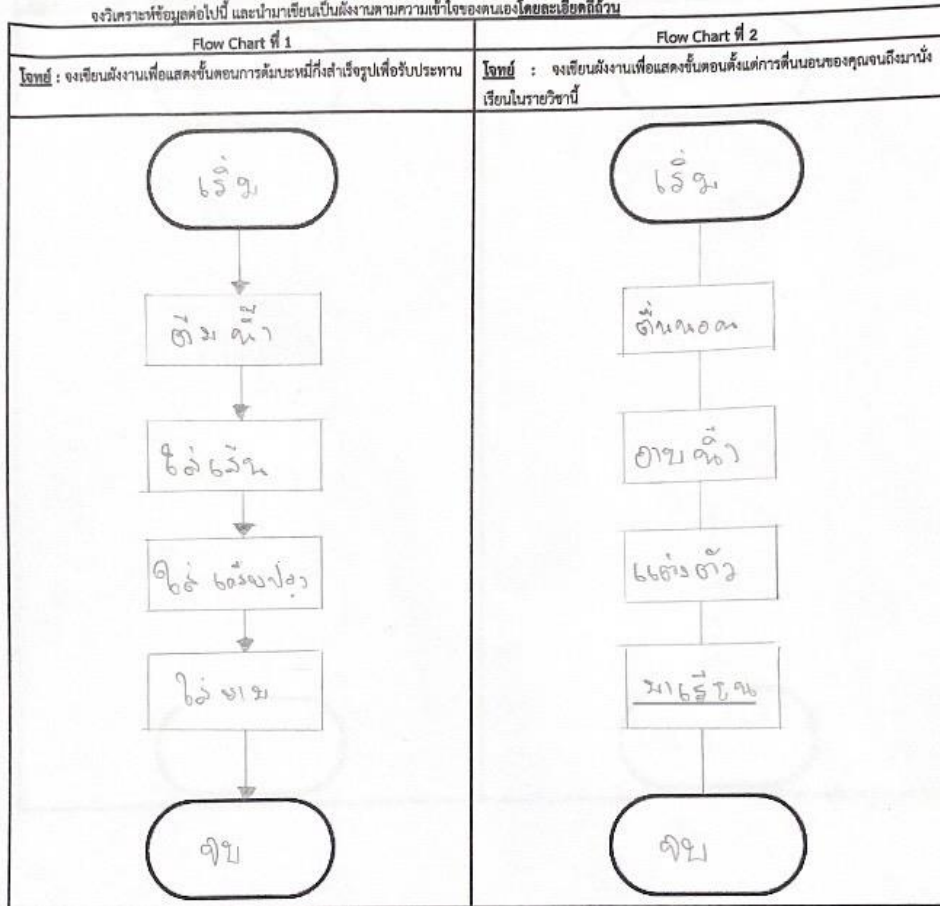 จงวิเคราะห์ข้อมูลต่อไปนี้ และนำมาเขียนเป็นผังงานตามความเข้าใจของตนเองโดยละเอียดถี่ถ้วน
Flow Chart ที่ 1
โจทย์ : จงเขียนผังงานเพื่อแสดงขั้นตอนการต้มบะหมี่กึ่งสำเร็จรูปเพื่อรับประทาน
เริ่ม
ต้มน้ำ
ใส่เส้น
ใส่เครื่องปรุง
ใส่ชาม
จบ
Flow Chart ที่ 2
โจทย์ : จงเขียนผังงานเพื่อแสดงขั้นตอนตั้งแต่การตื่นนอนของคุณจนถึงมานั่ง
เรียนในรายวิชานี้
เริ่ม
ตื่นนอน
อาบน้ำ
แต่งตัว
มาเรียน
จบ